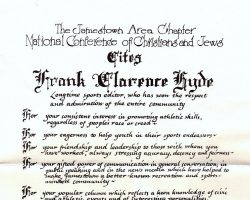 The Jamestown Area Chapter
National Conference of Christians and Jews
Cites
Frank Clarence Hyde
Longtime sports editor, who has won the respect
and admiration of the entire community
For your consistent interest in promoting athletic skills,
regardless of people's race or creed
For your eagerness to help youth in their sports endeavors
For your friendship and leadership to those with whom you
have worked, always stressing accuracy, decency and fairness
For your gifted power of communication in general conversation, in
public speaking and in the news media which have helped to
make Jamestown a better human recreation and sports
minded community
For your popular column which reflects a keen knowledge of civic
and athletic events and of interesting personalities